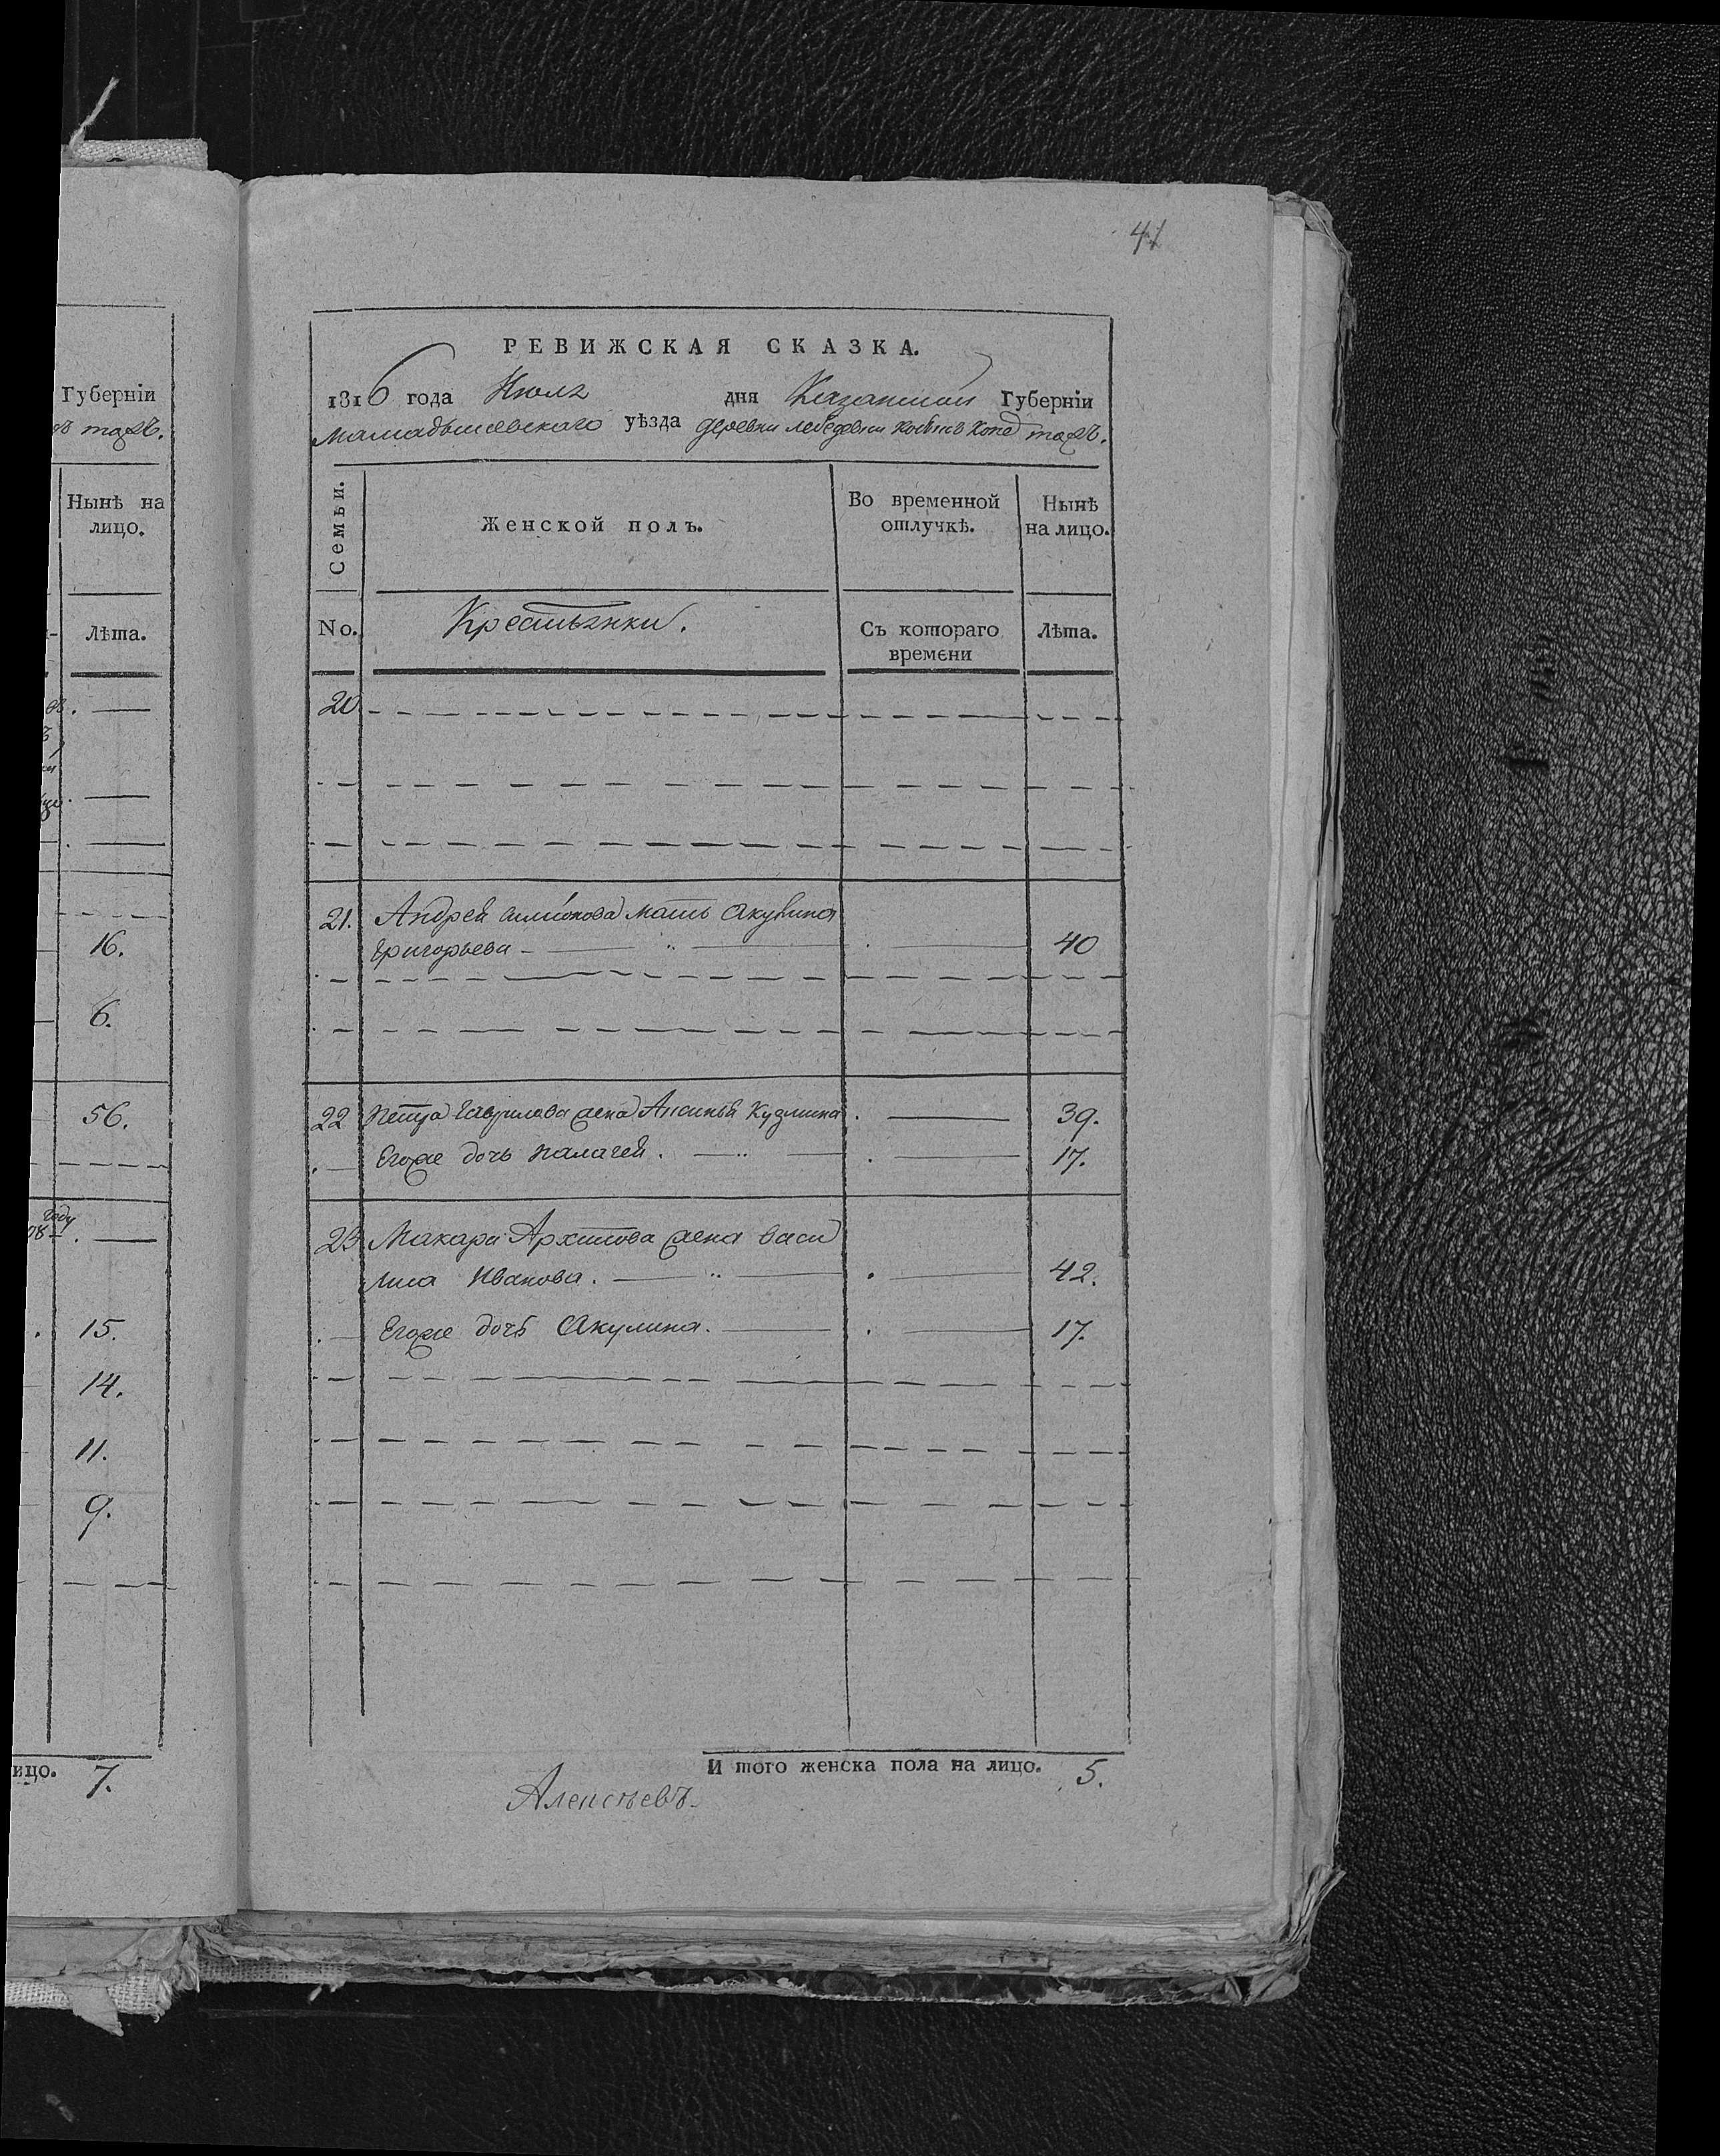 41
Губерніи
тожъ.
Нынѣ на
лицо.
Лѣта.
16.
6.
56.
году
15.
14.
11.
9.
ицо. 7.
РЕВИЖСКАЯ СКАЗКА.
1816 года Июля дня Казанской Губерніи
Мамадышевскаго уѣзда деревни лебедевки тожъ.
Семьи.
Женской полъ.
Во временной
отлучкѣ.
Нынѣ
на лицо.
No.
Крестьянки.
Съ котораго
времени
Лѣта.
20
21. Андрей мать Акулина
Григорьева 40
22 Петра Гаврилова жена Аксинья Кузмина 39.
Егоже дочь Палагея. 17.
23 Макара Архипова жена васи
лиса Иванова. 42.
Егоже дочь Акулина. 17.
И того женска пола на лицо. 5.
Алексѣевъ